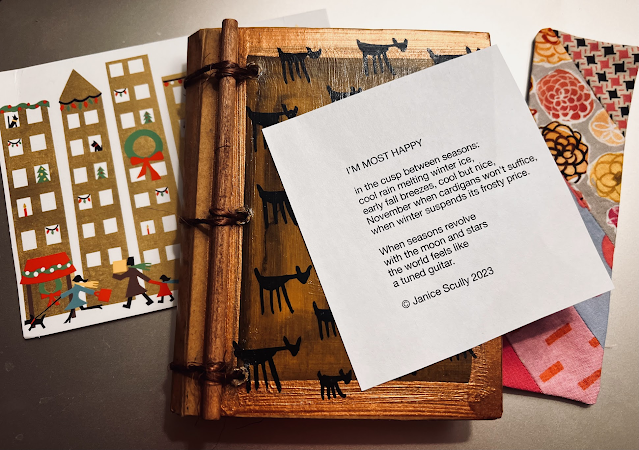 I'M MOST HAPPY
in the cusp between seasons:
cool rain melting winter ice,
early fall breezes, cool but nice,
November when cardigans won't suffice,
when winter suspends its frosty price.
When seasons revolve
with the moon and stars
the world feels like
a tuned guitar.
© Janice Scully 2023